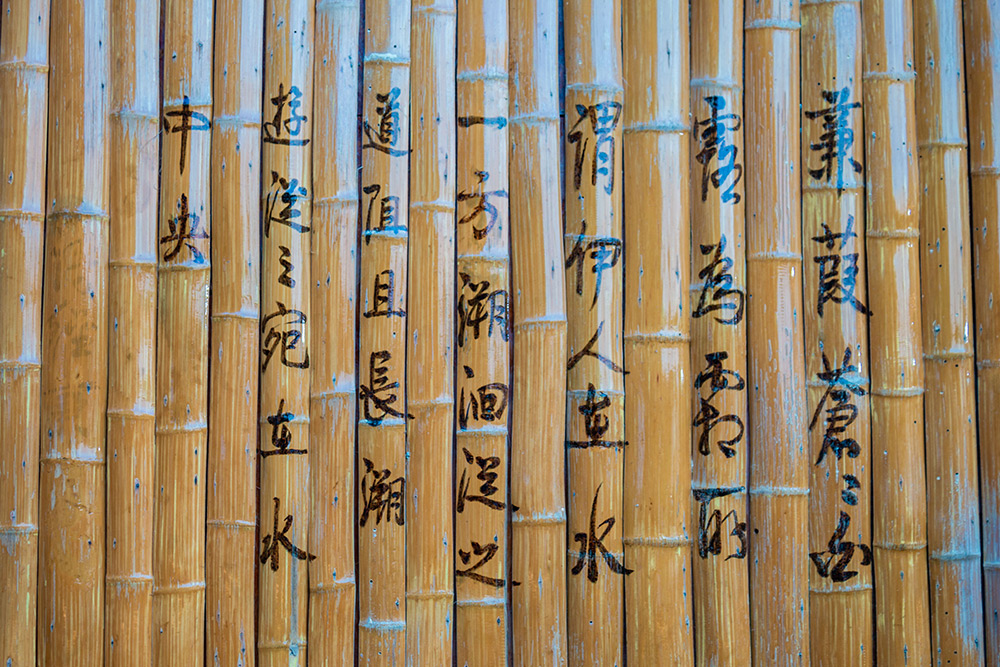 蒹葭蒼〻白
露為霜所
謂伊人在水
一方溯洄從之
道阻且長溯
游從之宛在水
中央